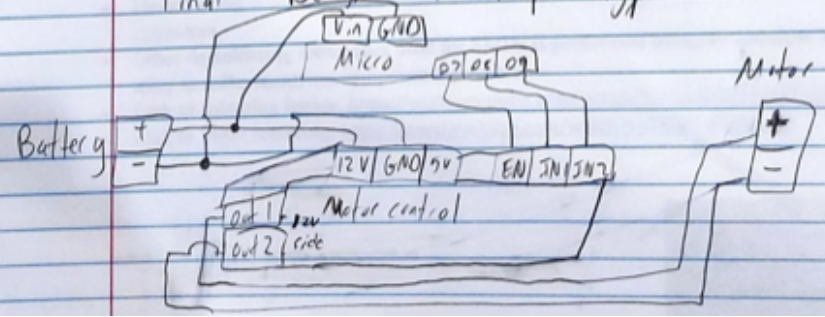 Final
Vin GND
Micro
D7 D8 D9
Motor
Battery + -
+ -
12V GND 5V EN IN1 IN2
Out 1 12V Motor control
Out 2 side